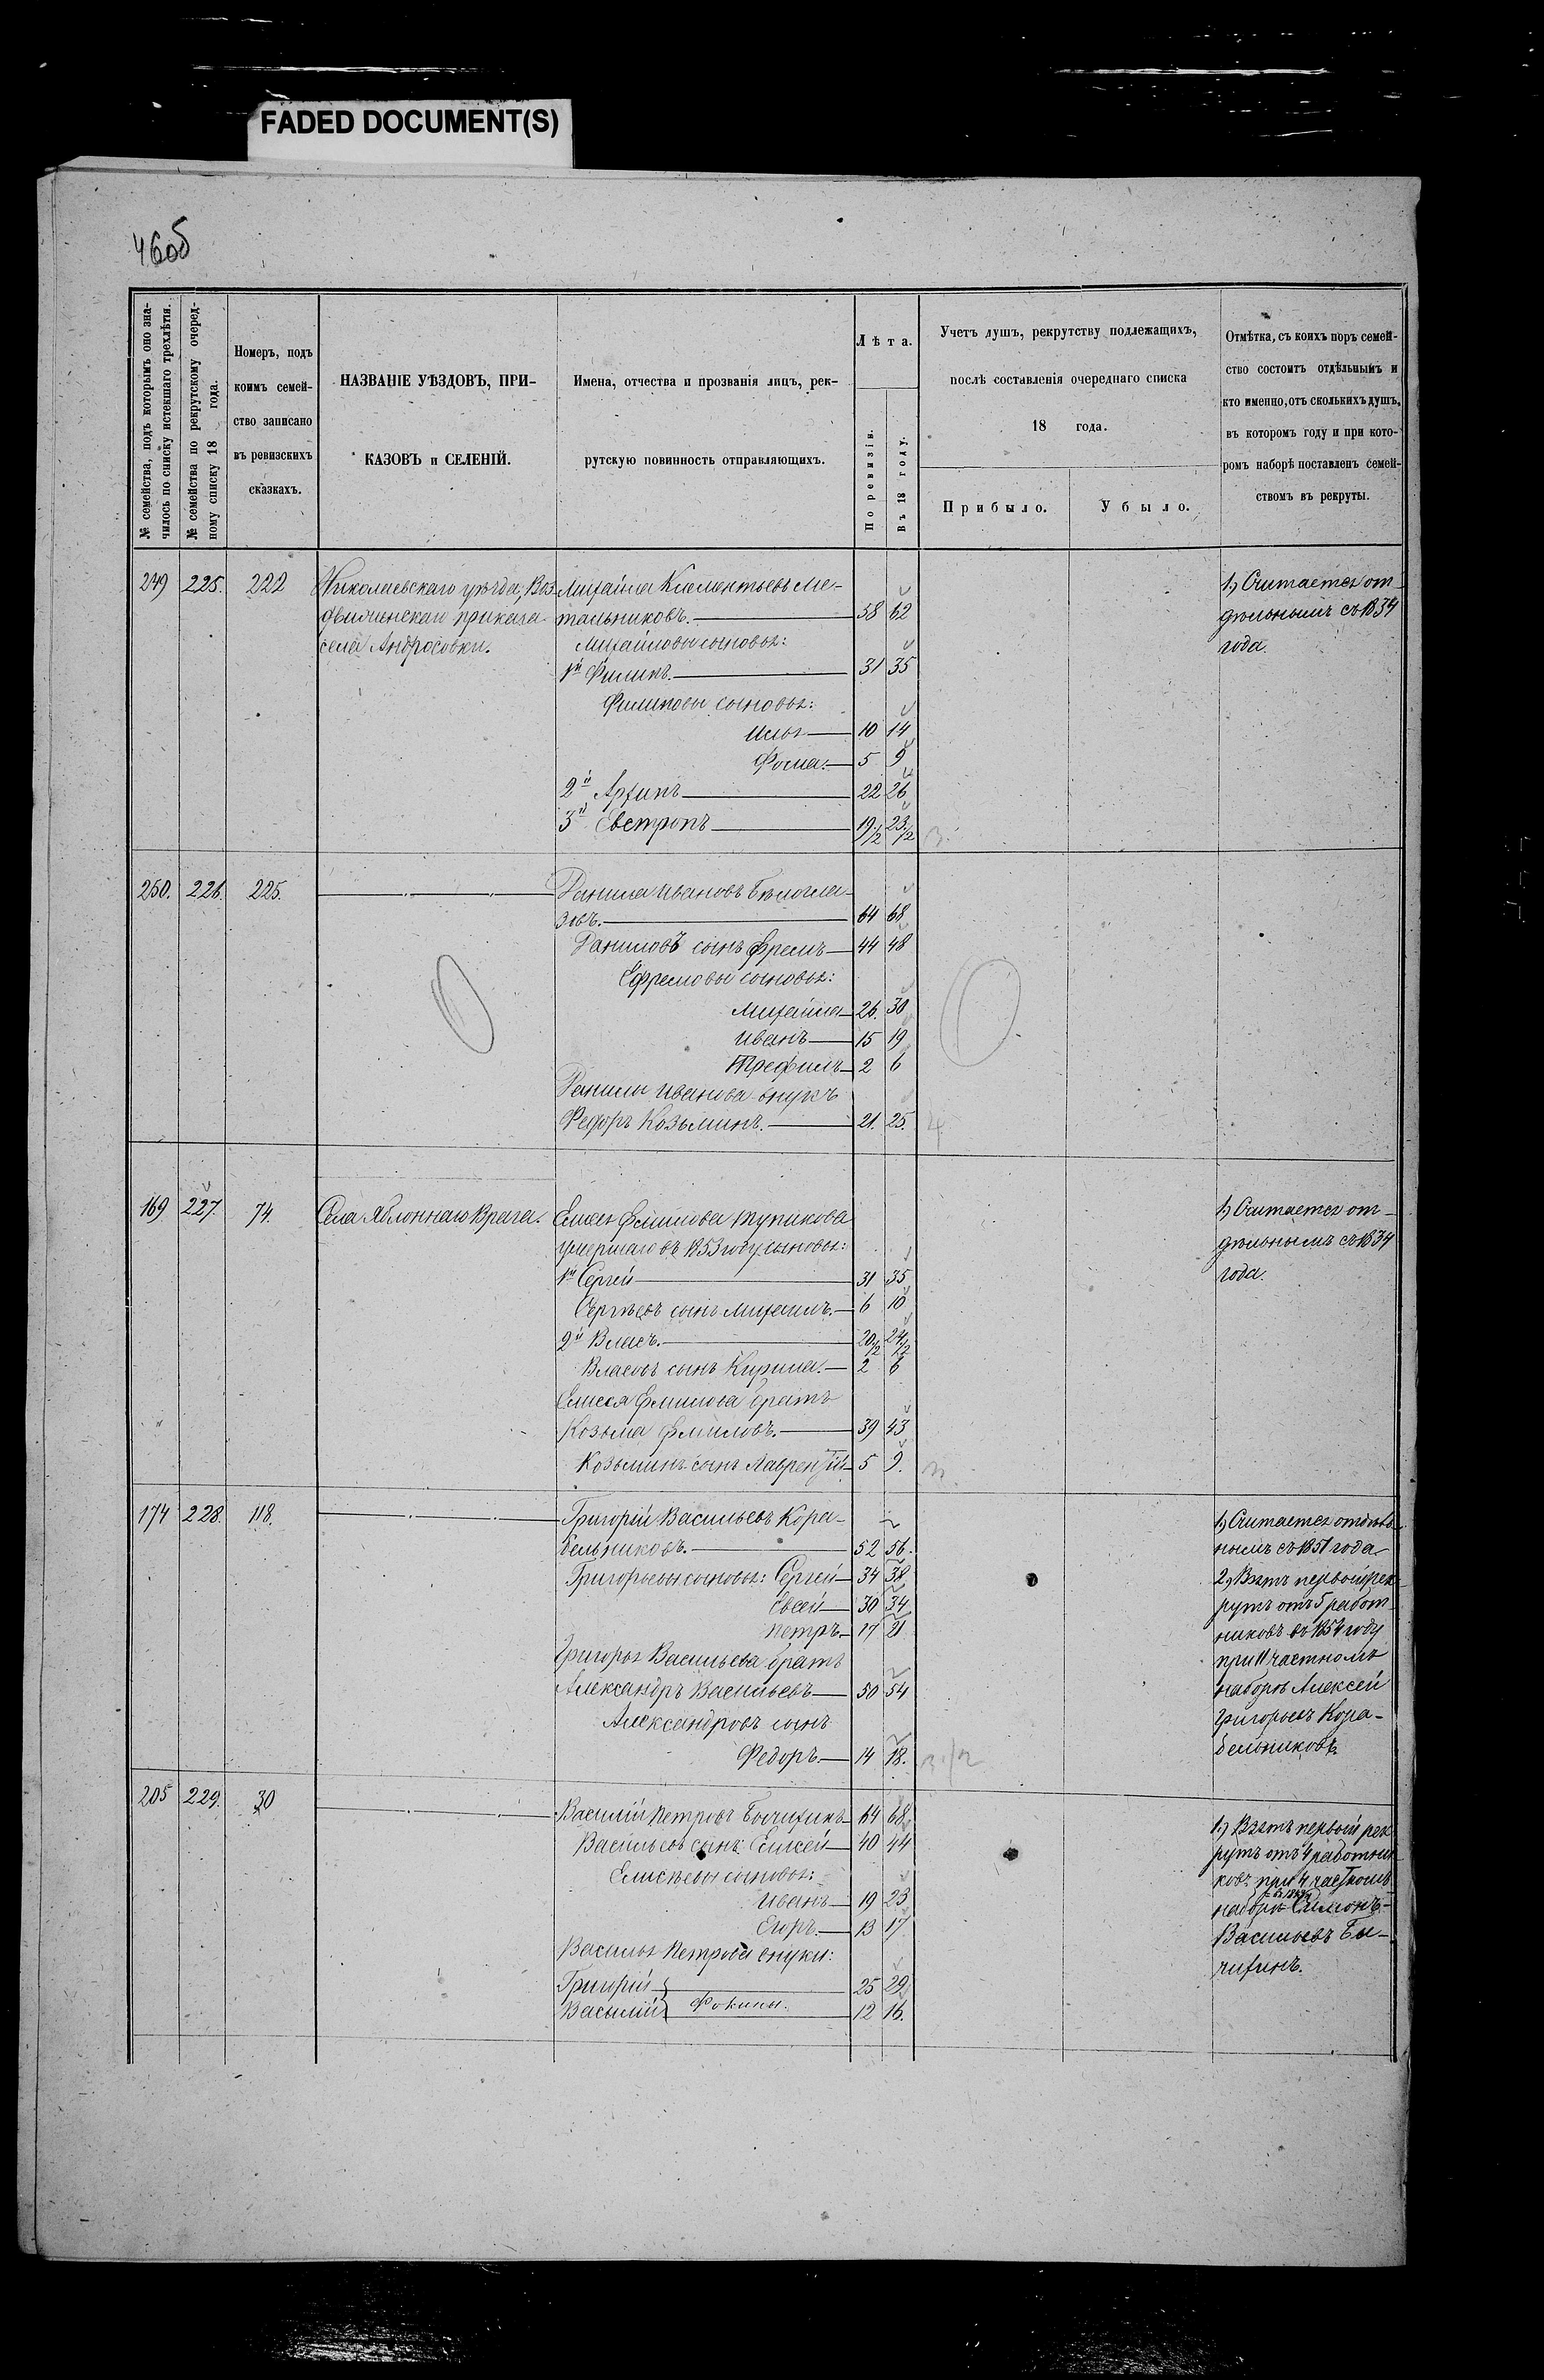 FADED DOCUMENT(S)
460б
№ семейства, подъ которымъ оно зна-
чилось по списку истекшаго трехлѣтія.
№ семейства по рекрутскому очеред-
ному списку 18 года.
Номеръ, подъ
коимъ семей-
ство записано
въ ревизскихъ
сказкахъ.
НАЗВАНІЕ УѢЗДОВЪ, ПРИ-
КАЗОВЪ и СЕЛЕНІЙ.
Имена, отчества и прозванія лицъ, рек-
рутскую повинность отправляющихъ.
Лѣта.
По ревизіи.
Въ 18 году.
Учетъ душъ, рекрутству подлежащихъ,
послѣ составленія очереднаго списка
18 года.
Прибыло.
Убыло.
Отмѣтка, съ коихъ поръ семей-
ство состоитъ отдѣльнымъ и
кто именно, отъ сколькихъ душъ,
въ которомъ году и при кото-
ромъ наборѣ поставленъ семей-
ствомъ въ рекруты.
249 225. 222 Николаевскаго уѣзда, Воз- Михайла Клементьевъ Ме- 1, Считается от-
движенскаго приказа тальниковъ. 58 62 дѣльнымъ съ 1834
села Андросовки. Михайловы сыновья: года.
1й Филипъ. 31 35
Филиповы сыновья:
Илья 10 14
Фома. 5 9
2й Архипъ 22 26
3й Евстропъ 19 1/2 23 1/2 3.
250. 226. 225. Данила Ивановъ Бѣлогла-
зовъ. 64 68
Даниловъ сынъ Ефремъ 44 48
Ефремовы сыновья:
Михайла 26. 30
Иванъ 15 19
Трефилъ 2 6
Данилы Иванова внукъ
Федоръ Козьминъ. 21. 25. 4
169 227. 74. Села Яблоннаго Врага. Елисея Емилова Тупикова 1, Считается от-
умершаго въ 1853 году сыновья: дѣльнымъ съ 1834
1й Сергѣй 31 35 года.
Сергѣевъ сынъ Михаилъ. 6 10
2й Власъ. 20 1/2 24 1/2
Власовъ сынъ Кирила. 2 6
Елисея Емилова братъ
Козьма Емиловъ. 39 43
Козьминъ сынъ Лаврентій 5 9.
174 228. 118. Григорій Васильевъ Кора- 1, Считается отдѣль
бельниковъ. 52 56. нымъ съ 1851 года
Григорьевы сыновья: Сергѣй 34 38 2, Взятъ первый рек
Евсей 30 34 рутъ отъ 5 работ
Петръ 17 21 никовъ въ 1854 году
Григорья Васильева братъ при 11 частномъ
Александръ Васильевъ 50 54 наборѣ Алексѣй
Александровъ сынъ Григорьевъ Кора-
Федоръ. 14 18. бельниковъ.
205 229. 30 Василій Петровъ Бычихинъ 64 68 1, Взятъ первый рек
Васильевъ сынъ: Елисей 40 44 рутъ отъ 4 работни
Елисѣевы сыновья: ковъ при 4 частномъ
Иванъ 19 23 наборѣ Симонъ
Егоръ. 13 17 Васильевъ Бы-
Василья Петрова внуки: чихинъ.
Григорій 25 29
Василій Фокины. 12 16.